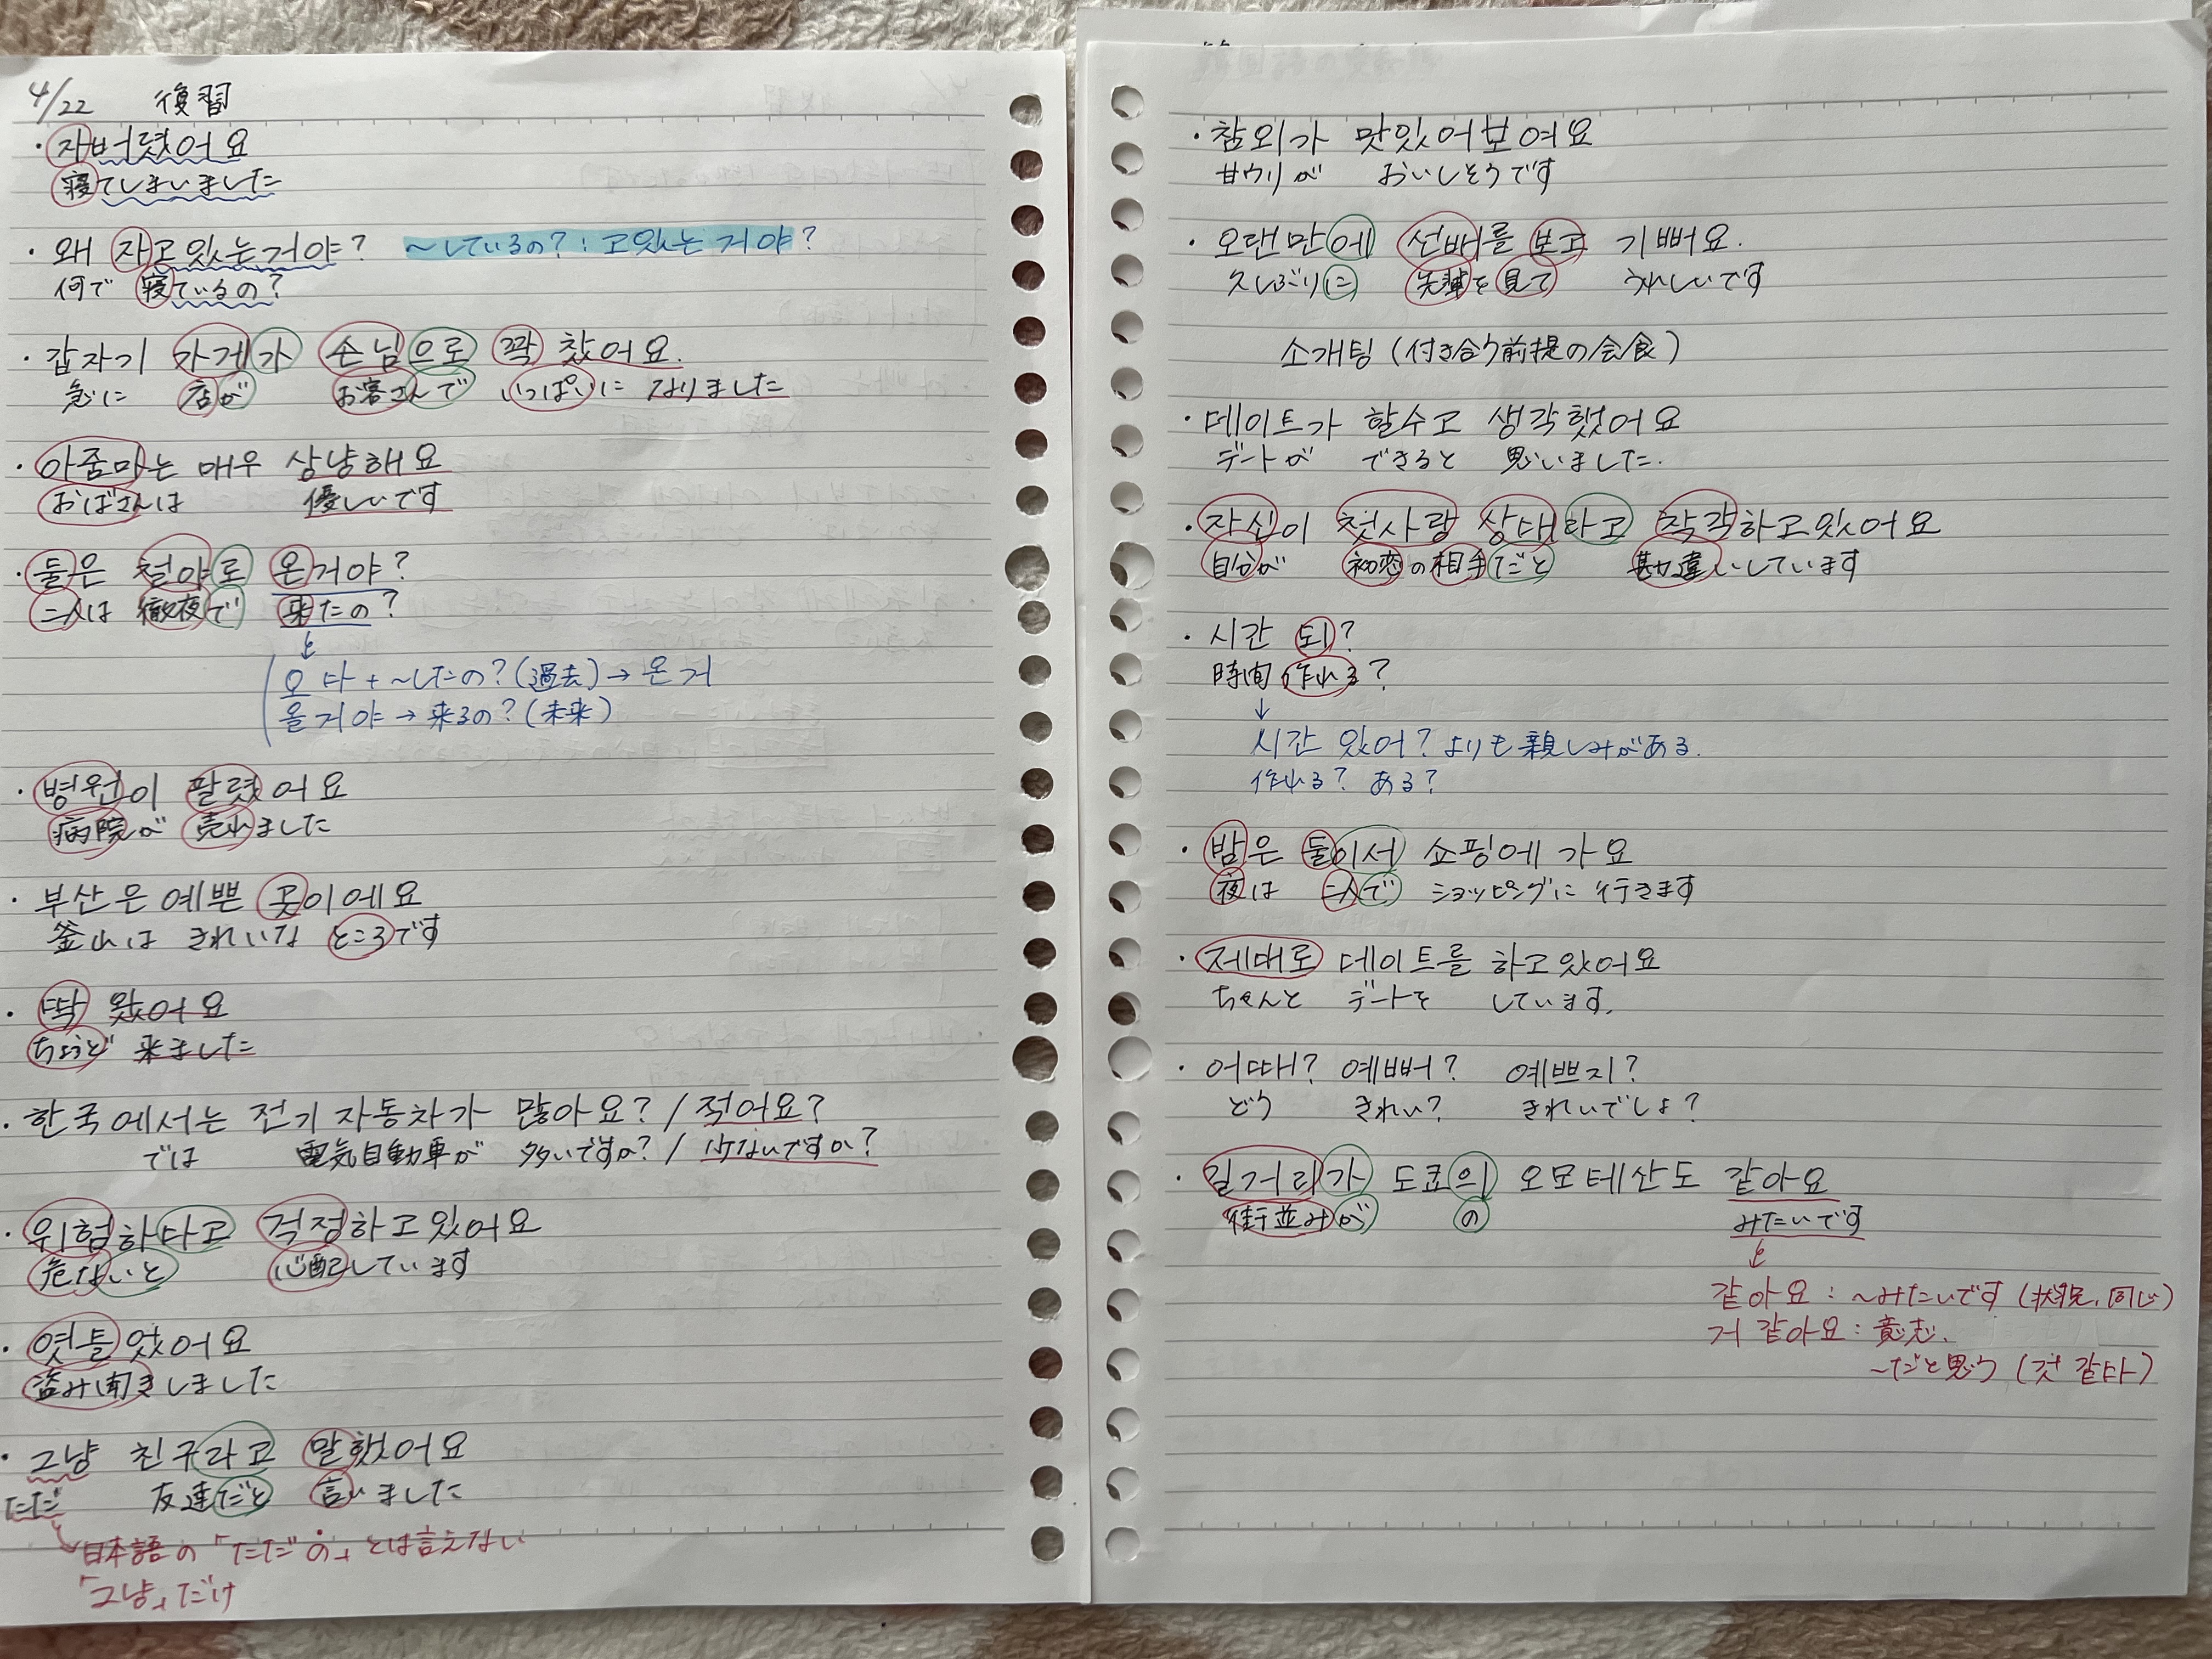 4/22 復習
・자버렸어요
寝てしまいました
・왜 자고있는거야? ～しているの?: 고있는 거야?
何で 寝ているの?
・갑자기 가게가 손님으로 꽉 찼어요.
急に 店が お客さんで いっぱいに なりました
・아줌마는 매우 상냥해요
おばさんは 優しいです
・둘은 철야로 온거야?
二人は 徹夜で 来たの?
오다+～したの?(過去)→온거
올거야→来るの?(未来)
・병원이 팔렸어요
病院が 売れました
・부산은 예쁜 곳이에요
釜山は きれいな ところです
・딱 왔어요
ちょうど 来ました
・한국에서는 전기 자동차가 많아요?/적어요?
では 電気自動車が 多いですか?/少ないですか?
・위험하다고 걱정하고있어요
危ないと 心配しています
・엿들었어요
盗み聞きしました
・그냥 친구라고 말했어요
ただ 友達だと 言いました
日本語の「ただの」とは言えない
「그냥」だけ
・참외가 맛있어보여요
甘ウリが おいしそうです
・오랜만에 선배를 보고 기뻐요.
久しぶりに 先輩を見て うれしいです
소개팅(付き合う前提の会食)
・데이트가 할수고 생각했어요
デートが できると 思いました.
・자신이 첫사랑 상대라고 착각하고있어요
自分が 初恋の相手だと 勘違いしています
・시간 되?
時間 作れる?
시간 있어? よりも親しみがある.
作れる? ある?
・밤은 둘이서 쇼핑에 가요
夜は 二人で ショッピングに 行きます
・제대로 데이트를 하고있어요
ちゃんと デートを しています.
・어때? 예뻐? 예쁘지?
どう きれい? きれいでしょ?
・길거리가 도쿄의 오모테산도 같아요
街並みが の みたいです
같아요: ～みたいです(状況.同じ)
거 같아요: 意志.
～だと思う(것 같다)